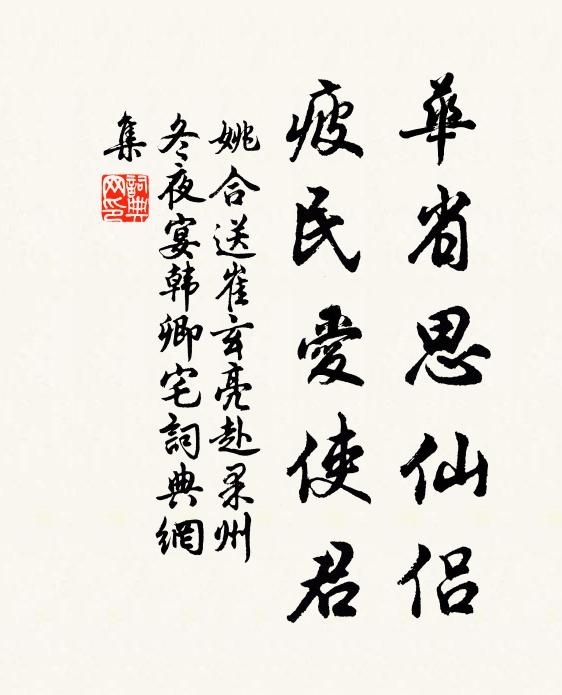 華省思仙侣
疲民愛使君
姚合送崔玄亮赴果州
冬夜宴韩卿宅詞典網
集
詞典
网印